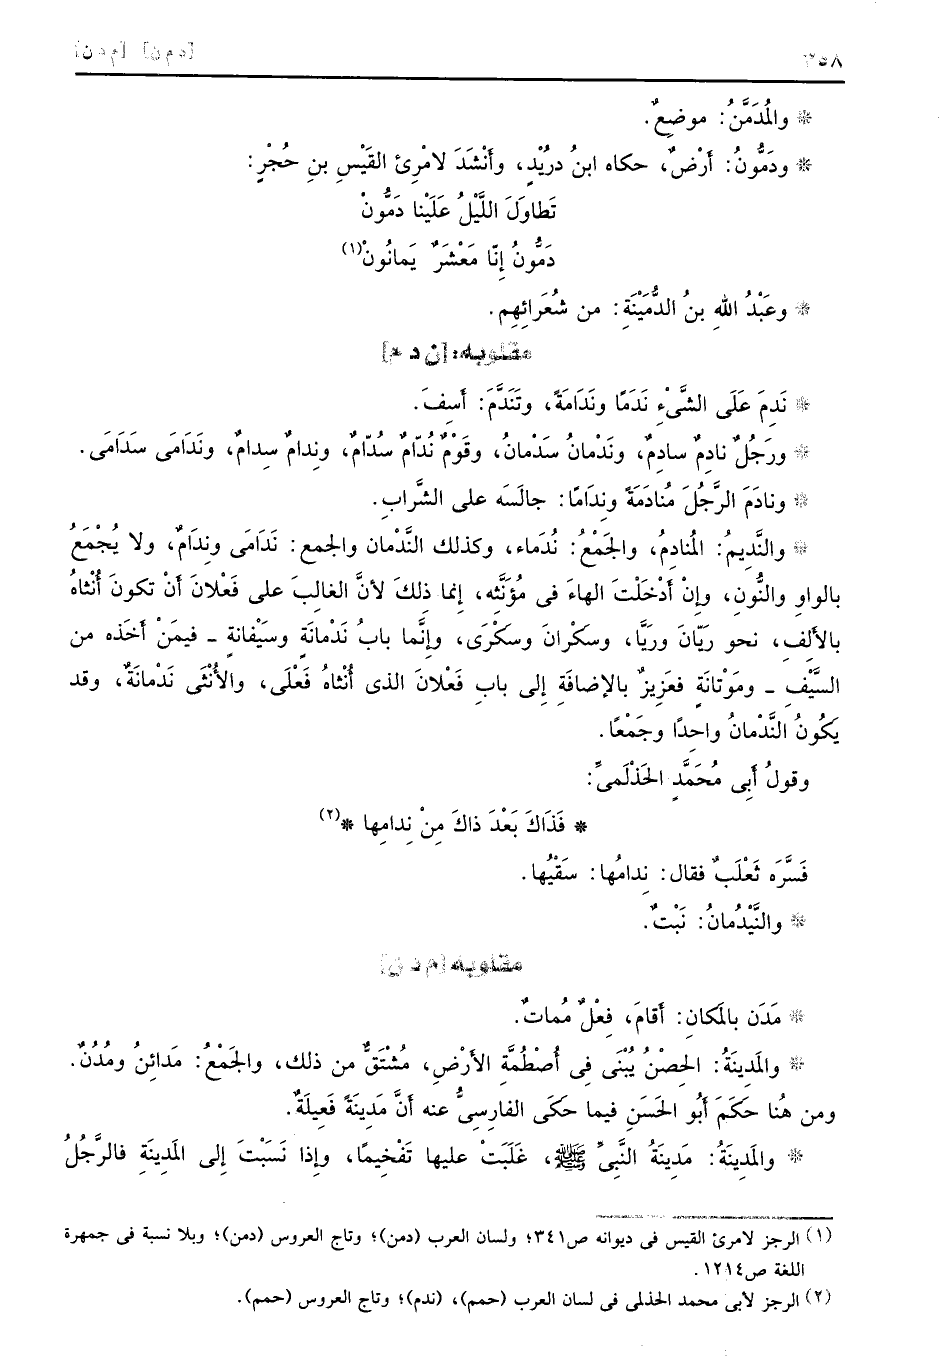 ٣٥٨ [دمن] [مدن]
* والمُدَمَّنُ: موضِعٌ.
* ودَمُّونُ: أرْضٌ، حكاه ابنُ دريْدٍ، وأنْشَدَ لامْرِئ القَيْسِ بنِ حُجْرٍ:
تَطاوَلَ اللَّيْلُ عَلَيْنا دَمُّونْ
دَمُّونُ إنّا مَعْشَرٌ يَمانُونْ(١)
* وعَبْدُ اللهِ بنُ الدُّمَيْنَةِ: من شُعَرائهِم.
مقلوبه: [ن د م]
* نَدِمَ عَلَى الشَّىْءِ نَدَمًا ونَدَامَةً، وتَنَدَّمَ: أسِفَ.
* ورَجُلٌ نادِمٌ سادِمٌ، ونَدْمانُ سَدْمانُ، وقَوْمٌ نُدّامٌ سُدّامٌ، وندامٌ سِدامٌ، ونَدَامَى سَدَامَى.
* ونادَمَ الرَّجُلَ مُنادَمَةً ونِدَامًا: جالَسَه على الشَّراب.
* والنَّديمُ: المُنادِمُ، والجَمْعُ: نُدَماء، وكذلك النَّدْمان والجمع: نَدَامَى ونِدَامٌ، ولا يُجْمَعُ
بالواوِ والنُّونِ، وإنْ أدْخَلْتَ الهاءَ فى مُؤَنَّثِه، إنما ذلكَ لأنَّ الغالبَ على فَعْلانَ أنْ تكونَ أُنْثاهُ
بالألفِ، نحو رَيّانَ ورَيَّا، وسَكْرانَ وسَكْرَى، وإنَّما بابُ نَدْمانَةٍ وسَيْفانةٍ - فيمَنْ أخَذه من
السَّيْفِ - ومَوْتانَةٍ فعَزيزٌ بالإضافَةِ إلى بابِ فَعْلانَ الذى أُنْثاهُ فَعْلَى، والأُنْثَى نَدْمانَةٌ، وقد
يكُونُ النَّدْمانُ واحدًا وجَمْعًا.
وقولُ أبى مُحَمَّدٍ الحَذْلَمىِّ:
* فَذَاكَ بَعْدَ ذاكَ مِنْ نِدامِها *(٢)
فَسَّرَه ثَعْلَبٌ فقال: نِدامُها: سَقْيُها.
* والنَّيْدُمانُ: نَبْتٌ.
مقلوبه [م د ن]
* مَدَن بالمَكانِ: أقامَ، فعْلٌ مُماتٌ.
* والمَدِينَةُ: الحِصْنُ يُبْنَى فى أُصْطُمَّةِ الأرْضِ، مُشْتَقٌّ من ذلك، والجَمْعُ: مَدائنُ ومُدُنٌ.
ومن هُنا حكَمَ أبُو الحَسَنِ فيما حكَى الفارسِىُّ عنه أنَّ مَدِينَةً فَعِيلَةٌ.
* والمَدِينَةُ: مَدِينَةُ النَّبىِّ ﷺ، غَلَبَتْ عليها تَفْخِيمًا، وإذا نَسَبْتَ إلى المَدِينَةِ فالرَّجُلُ
(١) الرجز لامرئ القيس فى ديوانه ص٣٤١؛ ولسان العرب (دمن)؛ وتاج العروس (دمن)؛ وبلا نسبة فى جمهرة
اللغة ص١٢١٤.
(٢) الرجز لأبى محمد الحذلمى فى لسان العرب (حمم)، (ندم)؛ وتاج العروس (حمم).